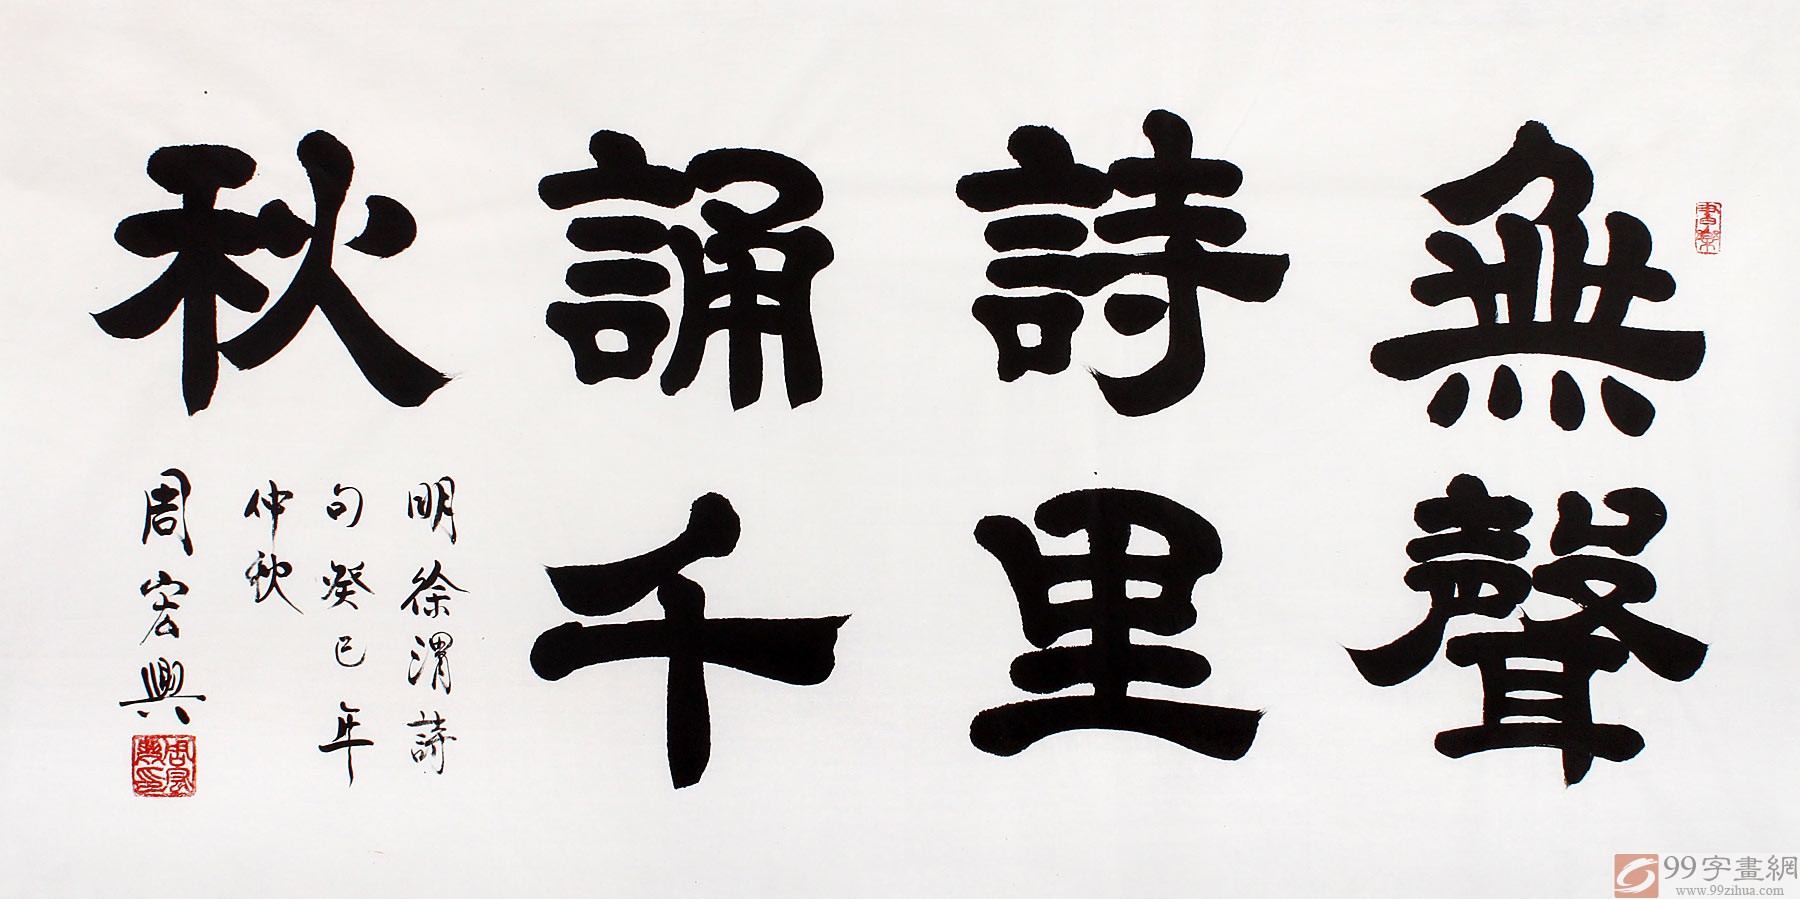 無聲
詩里
誦千
秋
明徐渭詩
句癸巳年
仲秋
周宏興
99字畫網
www.99zihua.com